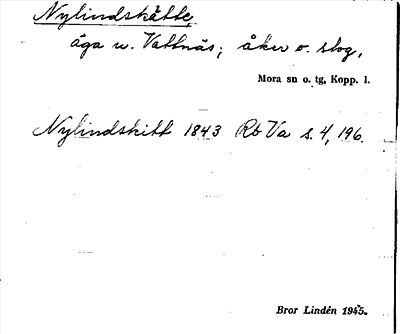 Nylindskätte,
äga u. Vattnäs; åker o. slog,
Mora sn o. tg, Kopp. l.
Nylindskitt 1843 Rb Va s. 4, 196.
Bror Lindén 1945.